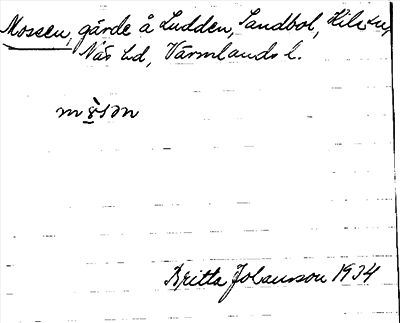 Mossen, gärde å Ludden, Sandbol,
Näs hd, Värmlands l.
Britta Johansson 1934